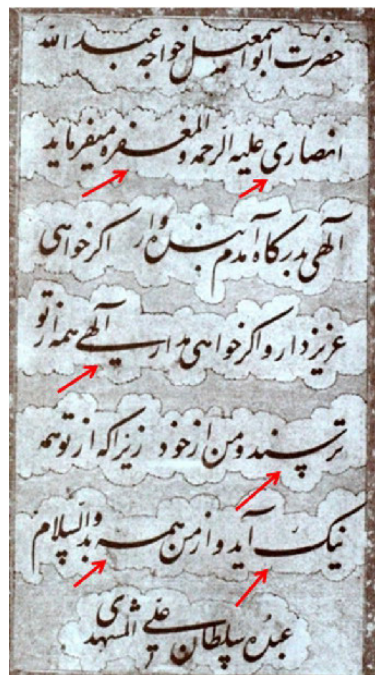 حضرت ابو اسمعیل خواجه عبد الله
انصاری علیه الرحمه والمغفره میفرماید
آلهی بدرکاه آمدم بنده وار اکر خواهی
عزیز دار و اکر خواهی مدار آلهی همه از تو
ترسند و من از خود زیرا که از تو همه
نیک آید و از من همه بد والسلام
عبده سلطان علی المشهدی